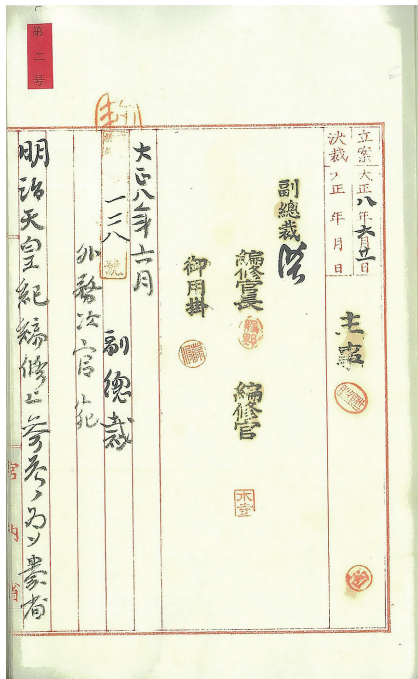 第二号
立案大正八年六月廿日
決裁大正　年　月　日
主査
副總裁
編修官長　編修官
御用掛
大正八年六月
一三八號
副總裁
外務次官宛
明治天皇紀編修上参考ノ為メ貴省
宮内省